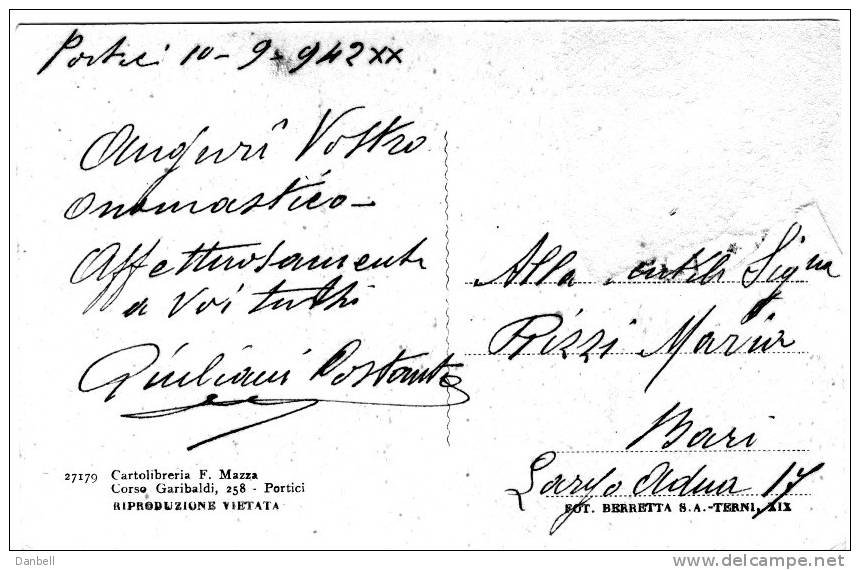 Portici 10-9-942 XX
Auguri Vostro
onomastico-
Affettuosamente
a Voi tutti
Giuliani Costante
Alla Sigra
Rizzi Maria
Bari
Largo Adua 17
27179 Cartolibreria F. Mazza
Corso Garibaldi, 258 - Portici
RIPRODUZIONE VIETATA
FOT. BERRETTA S.A.-TERNI, XIX
Danbell
www.delcampe.net